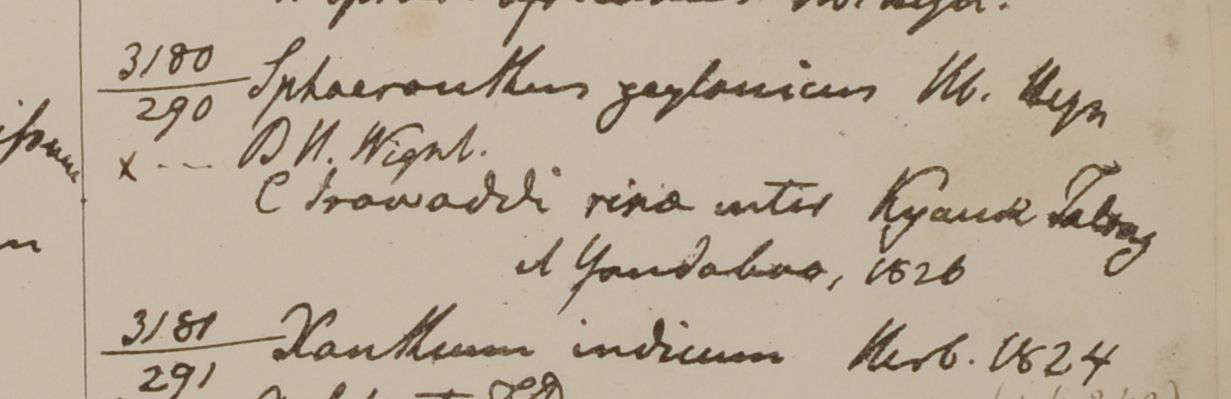 3180 Sphaeranthus zeylanicus Hb. Heyn
290
x --- B H. Wight.
C Irawaddi ripa inter Kyauk Talong
et Yandaboo, 1826
3181 Xanthium indicum Herb. 1824
291